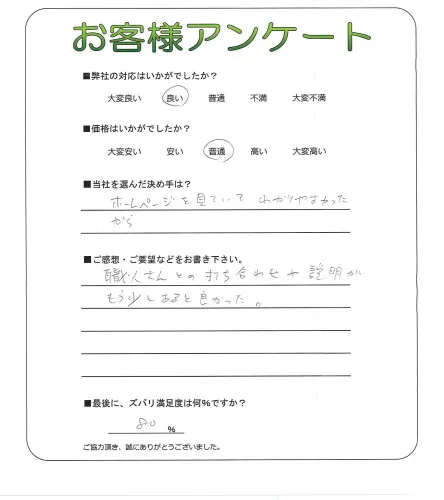 お客様アンケート
■弊社の対応はいかがでしたか?
大変良い 良い 普通 不満 大変不満
■価格はいかがでしたか?
大変安い 安い 普通 高い 大変高い
■当社を選んだ決め手は?
ホームページを見ていて わかりやすかった
から
■ご感想・ご要望などをお書き下さい。
職人さんとの打ち合わせや説明が
もう少しあると良かった。
■最後に、ズバリ満足度は何%ですか?
80 %
ご協力頂き、誠にありがとうございました。